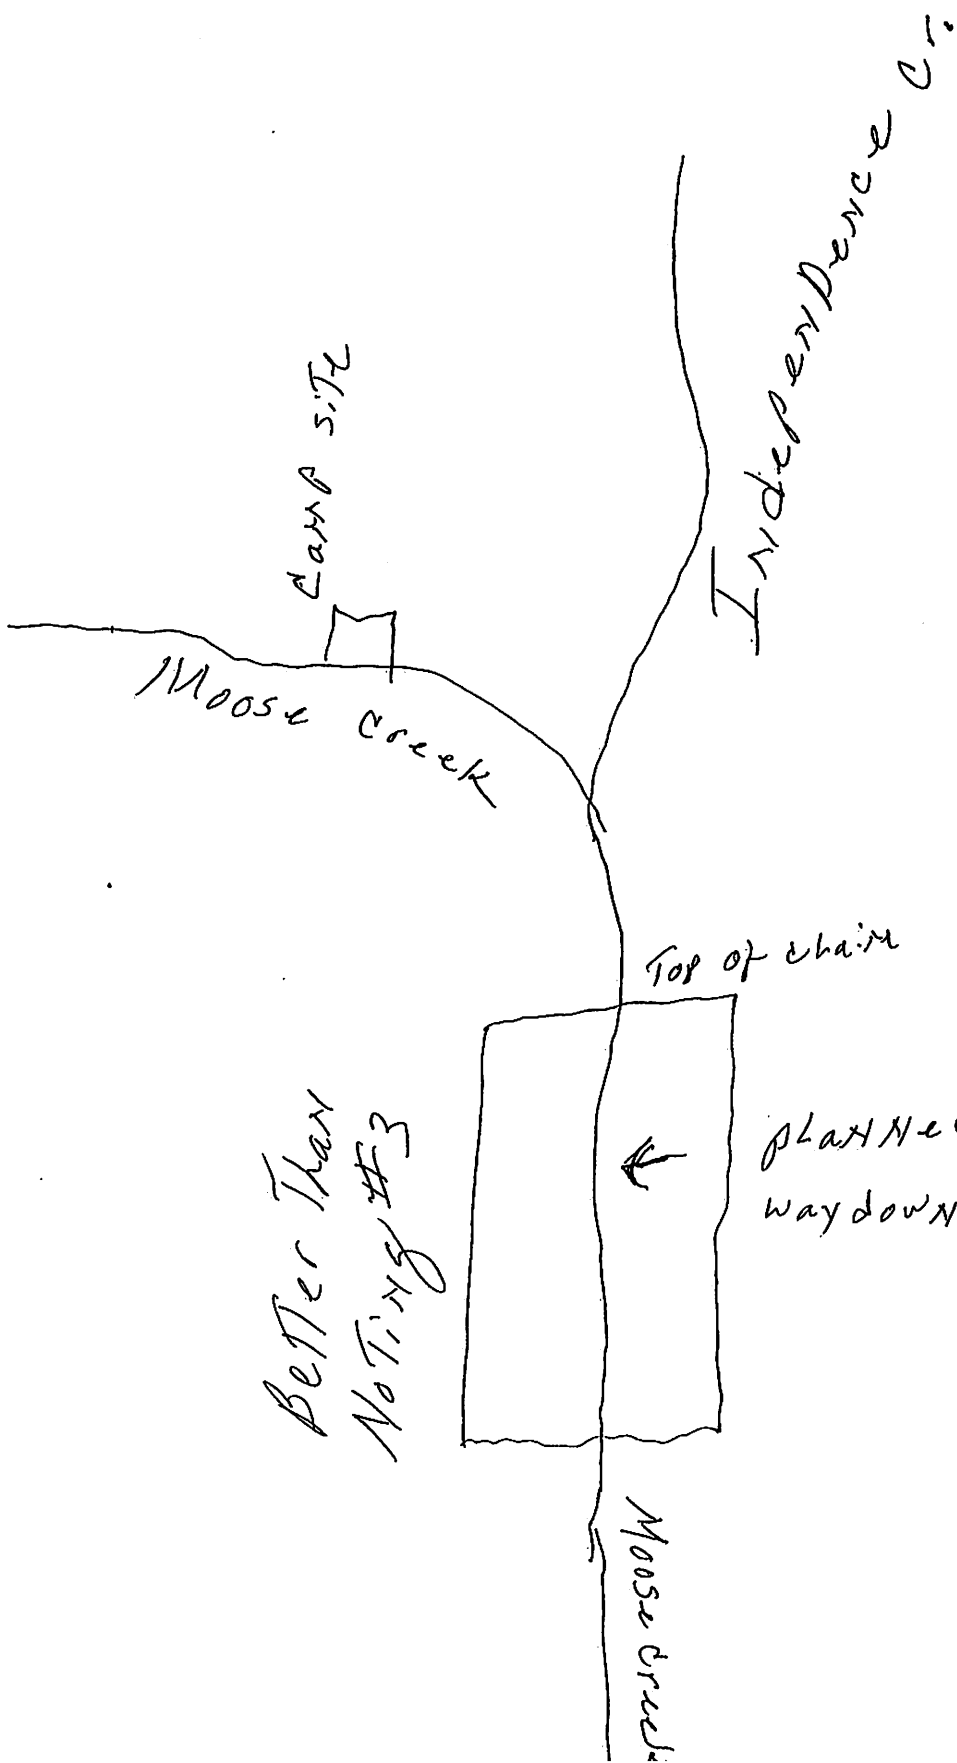 Independence Cr.
Camp site
Moose Creek
Top of chain
Better Than
NoTing #3
planne
way down
Moose Creek